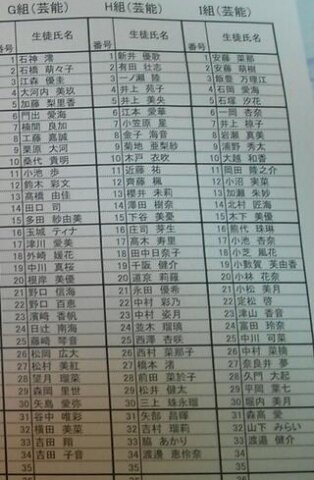 G組(芸能) H組(芸能) I組(芸能)
番号 生徒氏名 番号 生徒氏名 番号 生徒氏名
1 石神 澪 1 新井 優歌 1 安藤 菜那
2 石橋 萌々子 2 有田 壮志 2 安藤 萌樹
3 江森 優圭 3 一ノ瀬 陸 3 飯豊 万理江
4 大河内 美玖 4 井上 苑子 4 石岡 愛海
5 加藤 梨里香 5 井上 美央 5 石塚 汐花
6 門出 愛海 6 江本 愛華 6 一岡 杏奈
7 楠間 良加 7 小笠原 星 7 井上 椋子
8 工藤 嘉誠 8 金子 海音 8 岩瀬 真美
9 栗原 大河 9 菊地 亜梨紗 9 浦野 秀太
10 桑代 貴明 10 木戸 衣吹 10 大越 和香
11 小池 歩 11 近藤 祐 11 岡田 隆之介
12 鈴木 彩文 12 齊藤 楓 12 小沼 実菜
13 高橋 由佳 13 櫻井 朱莉 13 加瀬 朱紗
14 田口 司 14 澤田 樹奈 14 北村 匠海
15 多田 紗由美 15 下谷 美憂 15 木下 美優
16 玉城 ティナ 16 庄司 芽生 16 熊代 珠琳
17 津川 愛美 17 高木 寿里 17 小池 杏奈
18 外崎 媛花 18 田中日奈子 18 小芝 風花
19 中川 真桜 19 千阪 健介 19 小数賀 芙由香
20 根岸 美優 20 道京 莉羅 20 小林 花奈
21 野口 信海 21 永田 優希 21 小松 美月
22 野口 百恵 22 中村 彩乃 22 定松 啓
23 濱﨑 香帆 23 中村 姿月 23 津山 香音
24 日辻 南海 24 並木 瑠璃 24 富田 玲奈
25 藤﨑 琴音 25 西澤 杏咲 25 中川 可菜
26 松岡 広大 26 西村 菜那子 26 中村 菜摘
27 松村 美紅 27 橋本 渚 27 奈良井 夢
28 望月 瑠菜 28 前田 菜於子 28 久門 大起
29 森岡 里世 29 松井 健太 29 平熊 葉七
30 矢島 愛弥 30 三上 珠永瑠 30 堀内 美月
31 谷中 唯彩 31 矢部 昌暉 31 森高 愛
32 横田 美菜 32 吉村 瑠莉 32 山下 みらい
33 吉田 翔 33 脇 あかり 33 渡邉 健介
34 吉田 子音 34 渡邊 恵伶奈 34
35 35 35